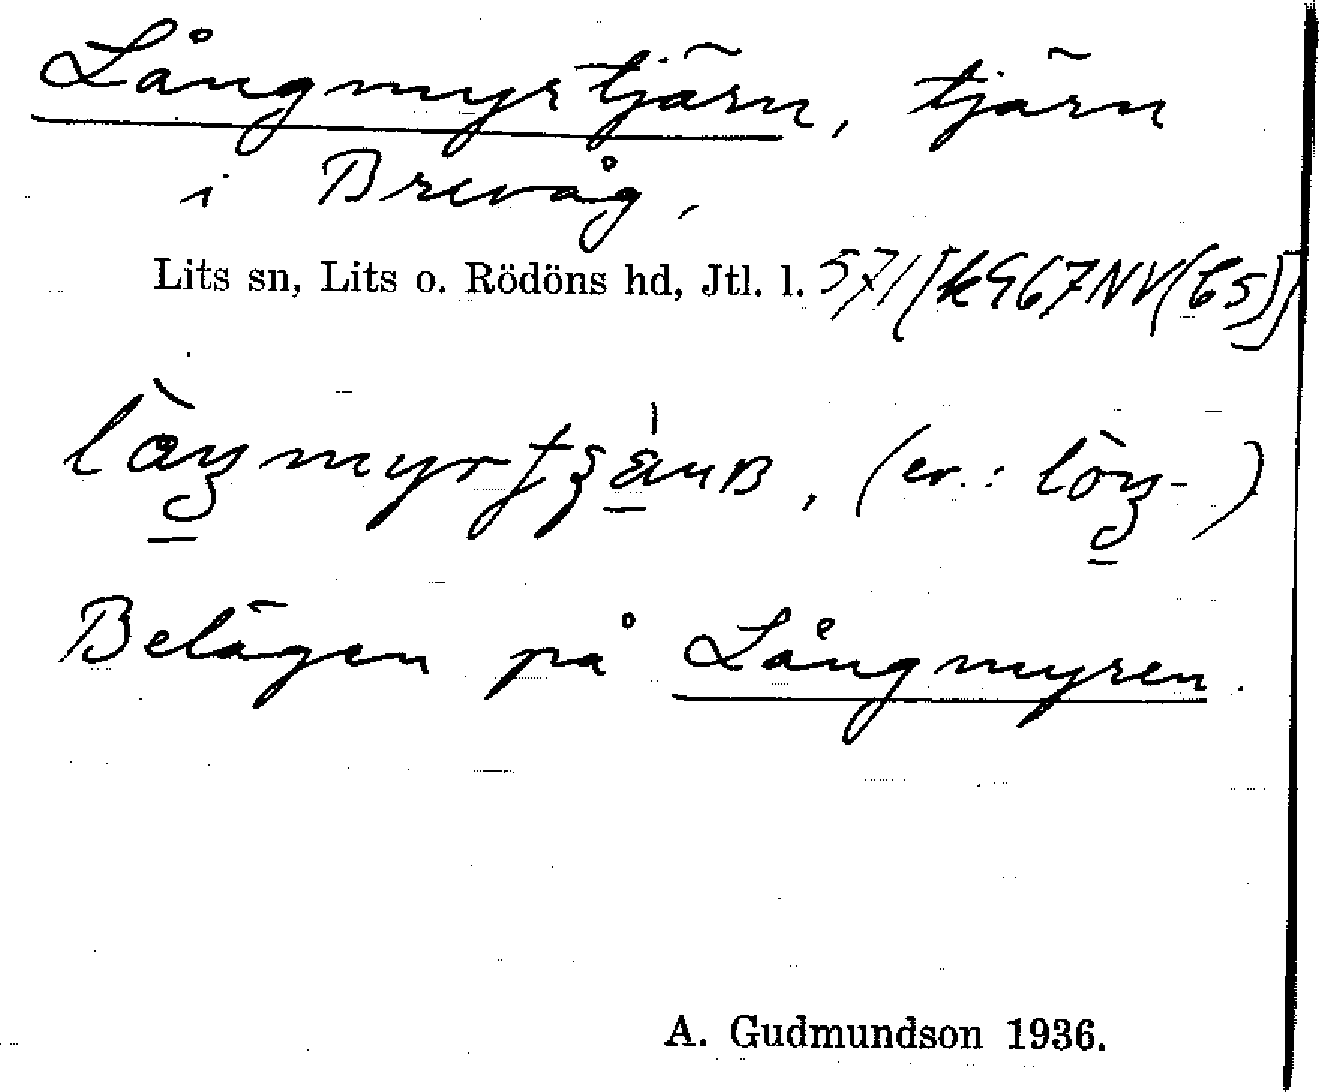 Långmyrtjärn, tjärn
i Brevåg,
Lits sn, Lits o. Rödöns hd, Jtl. l. 571[k967NV(65)]
(ev.:
Belägen på Långmyren.
A. Gudmundson 1936.